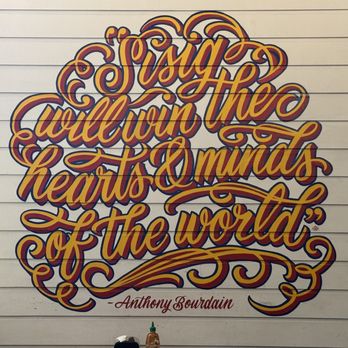 "Sisig
will win the
hearts & minds
of the world"
- Anthony Bourdain